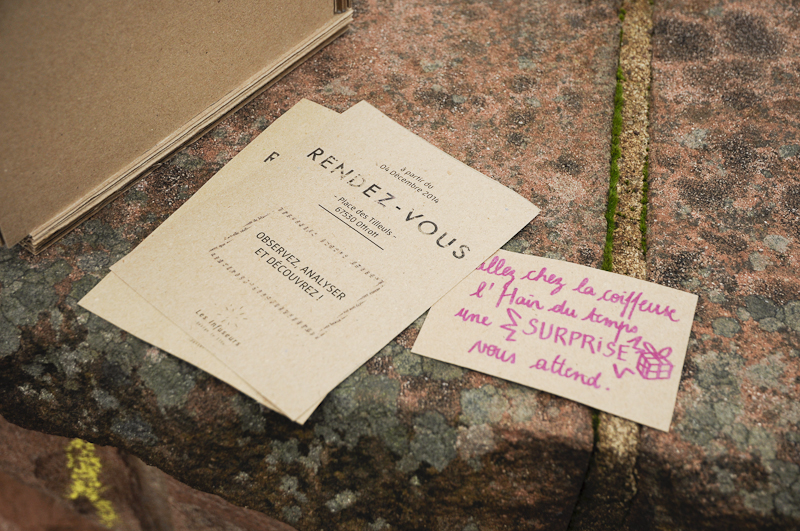 F
RENDEZ-VOUS
à partir du
04 Décembre 2014
- Place des Tilleuls -
67530 Ottrott
OBSERVEZ, ANALYSER
ET DÉCOUVREZ !
Les Infuseurs
allez chez la coiffeuse
l'Hair du temps
une SURPRISE
vous attend.